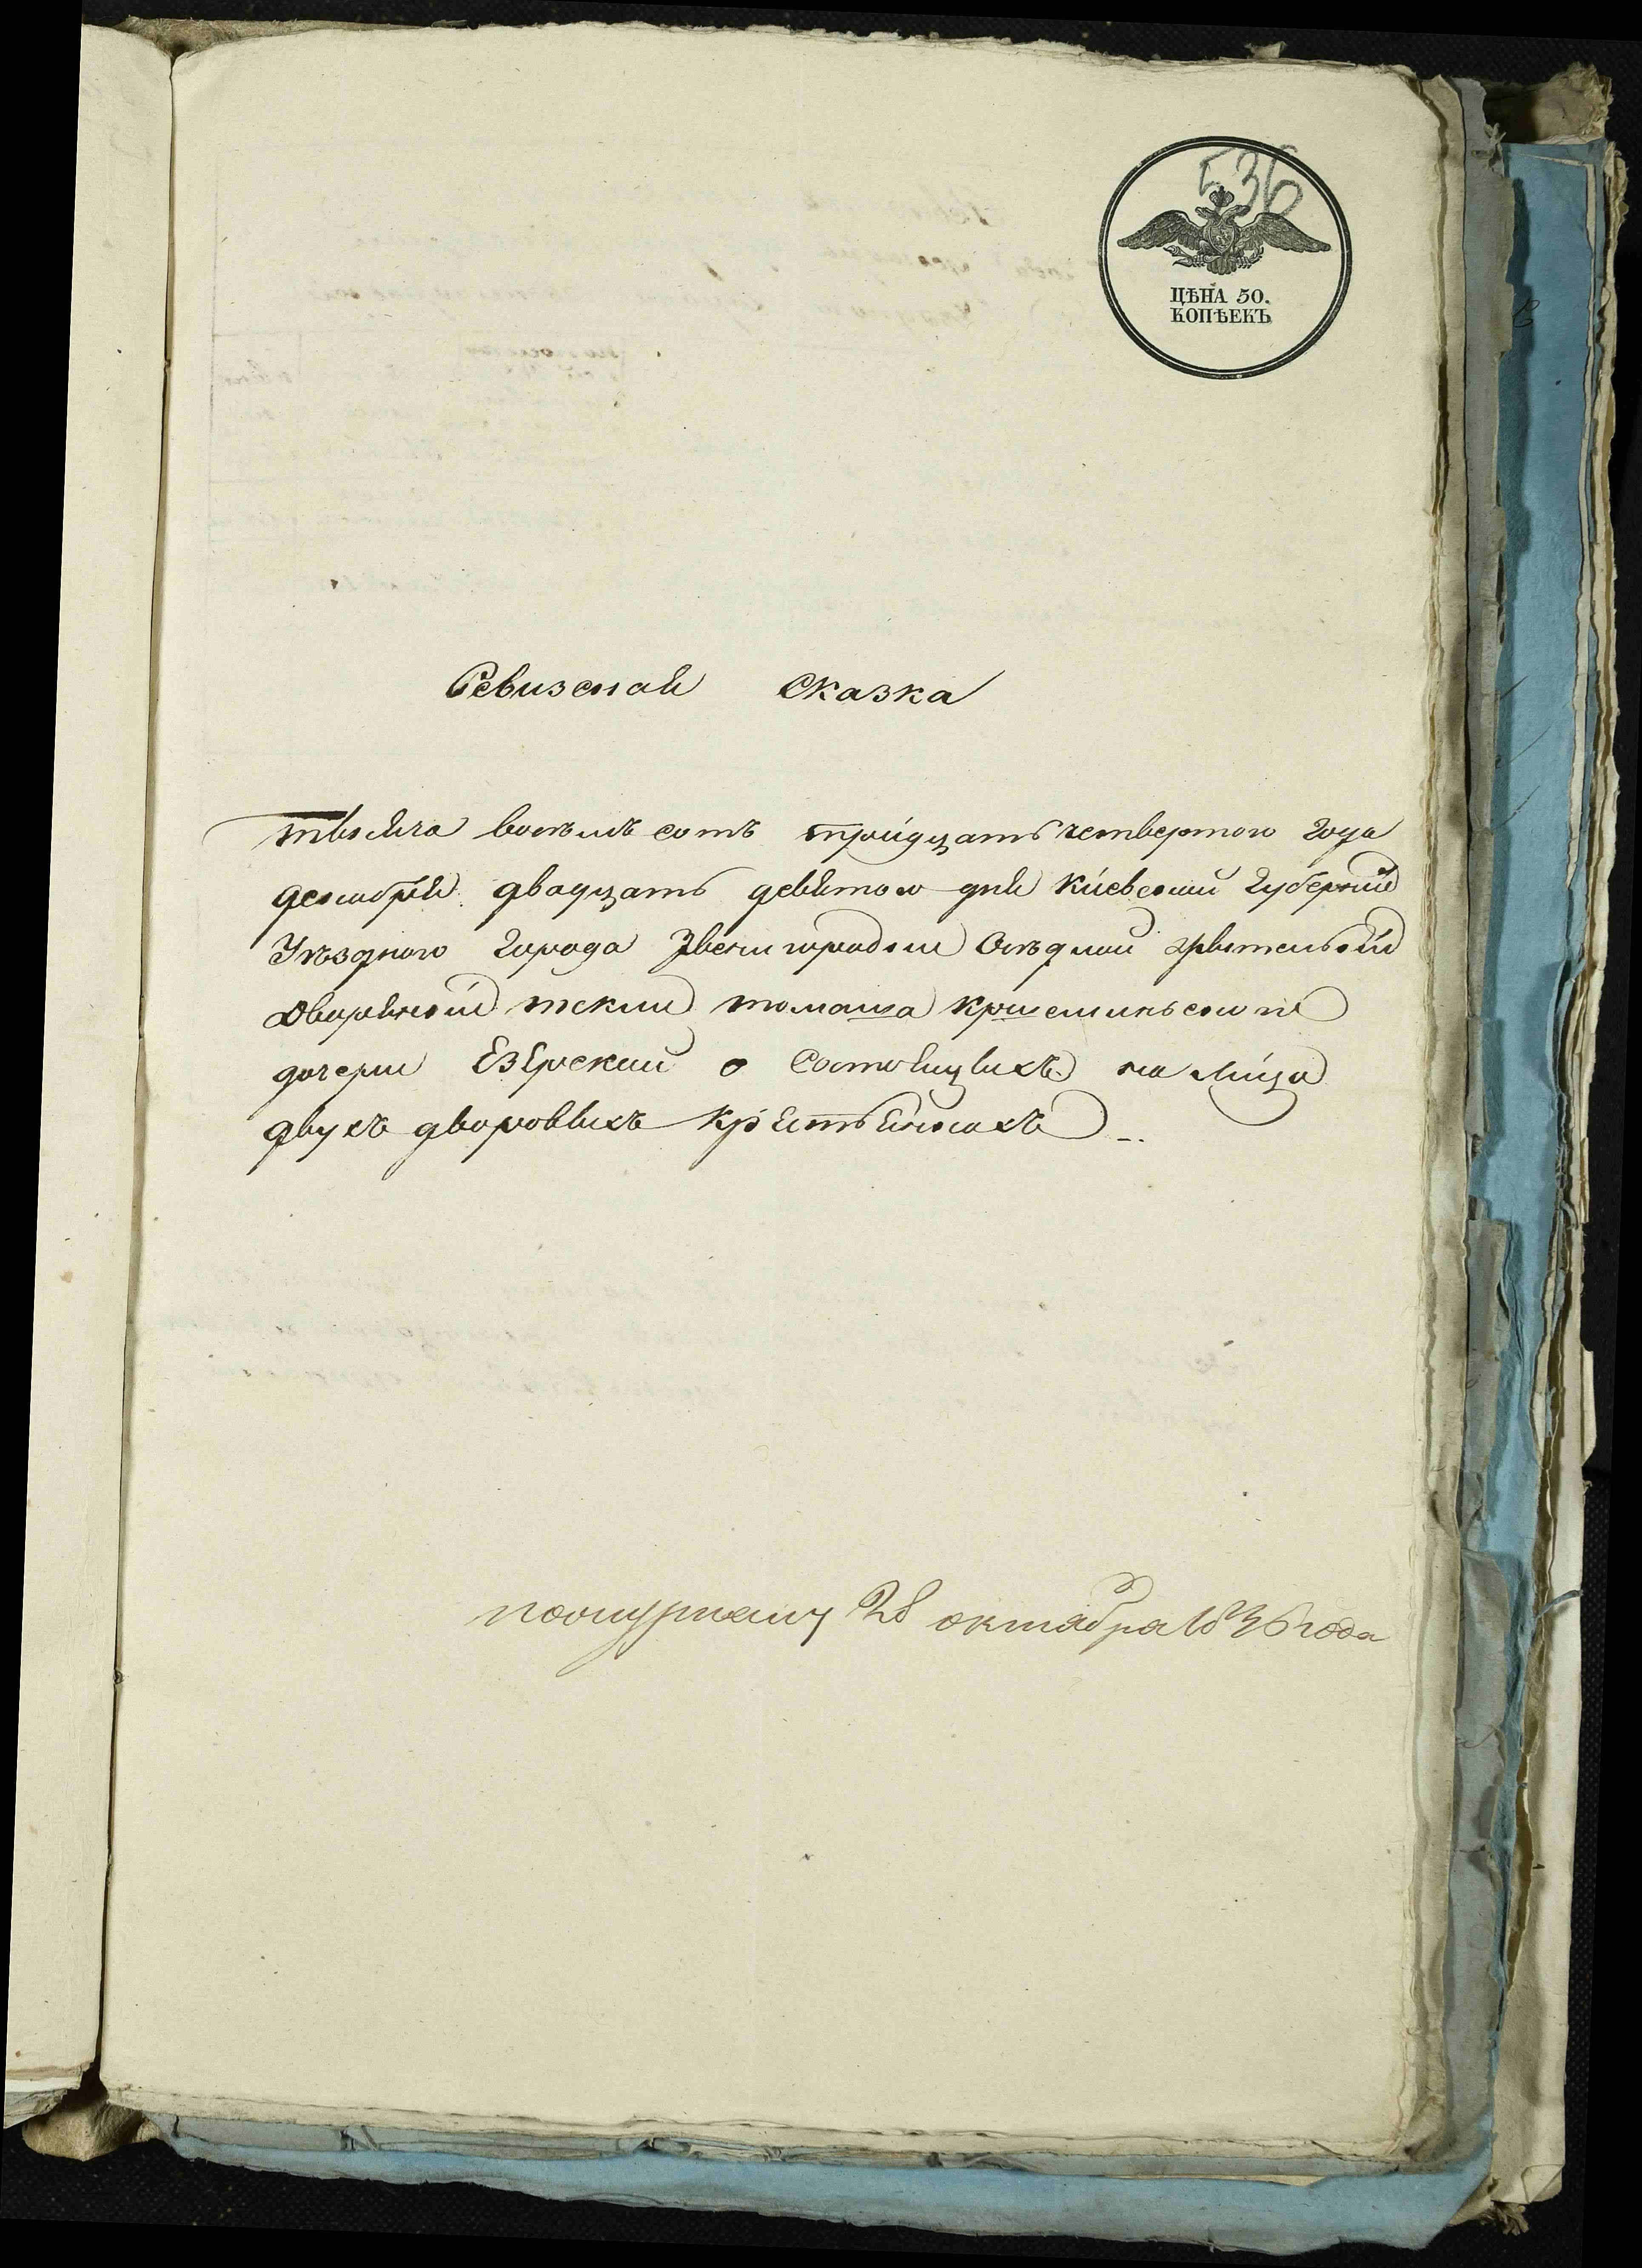 536
ЦѢНА 50.
КОПѢЕКЪ
Ревизская Сказка
тысяча восемъ сотъ тройдцать четвертого года
декабря двадцать девятого дня Кіевской Губерніи
Уѣзднаго Города Звенигородки Осѣдлой жительки
Дворянки теклы томаша
дочери Езерской о Состоящихъ на лицо
двухъ дворовыхъ крестьянахъ
28 октября 1836 года